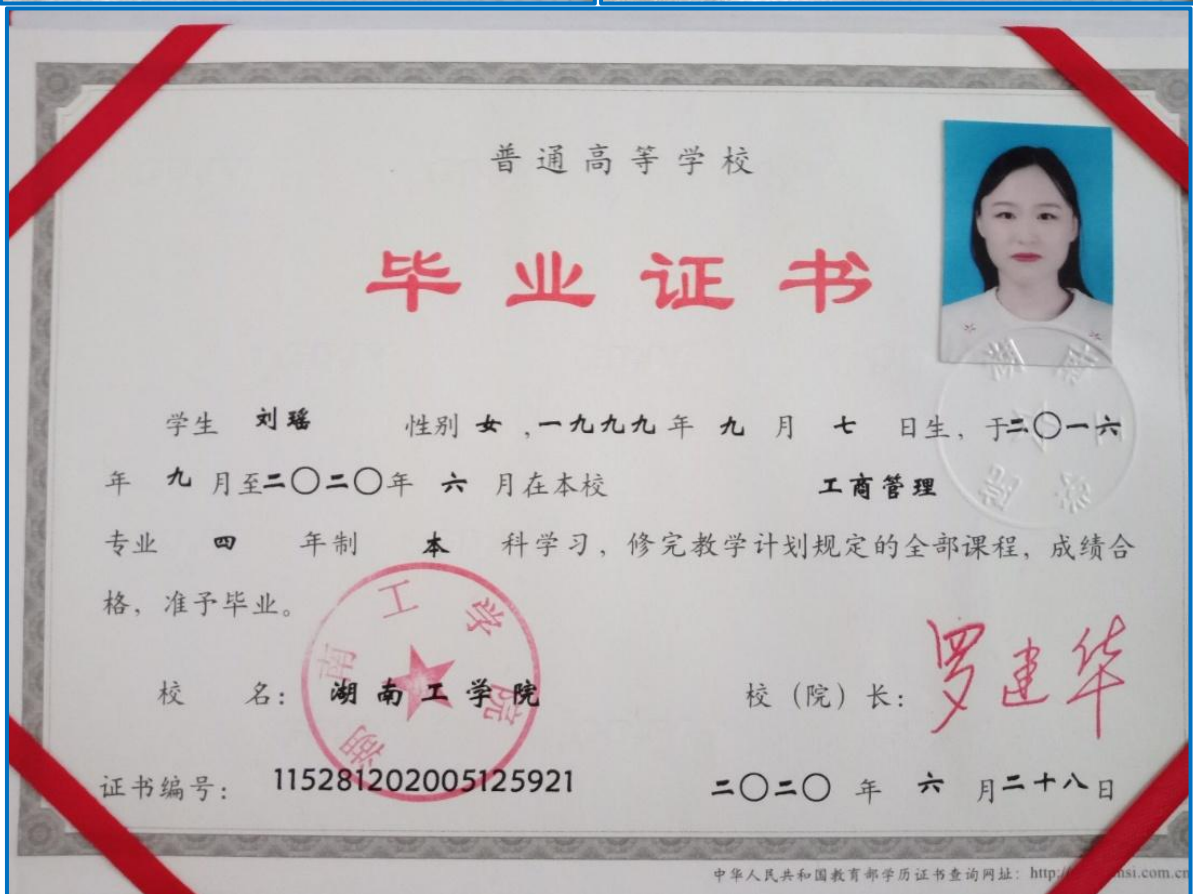 普通高等学校
毕业证书
学生 刘瑶 性别 女,一九九九年 九 月 七 日生,于二〇一六
年 九 月至二〇二〇年 六 月在本校 工商管理
专业 四 年制 本 科学习,修完教学计划规定的全部课程,成绩合
格,准予毕业。
湖南工学院
校 名: 湖南工学院 校(院)长: 罗建华
证书编号: 115281202005125921 二〇二〇 年 六 月二十八日
中华人民共和国教育部学历证书查询网址: http: